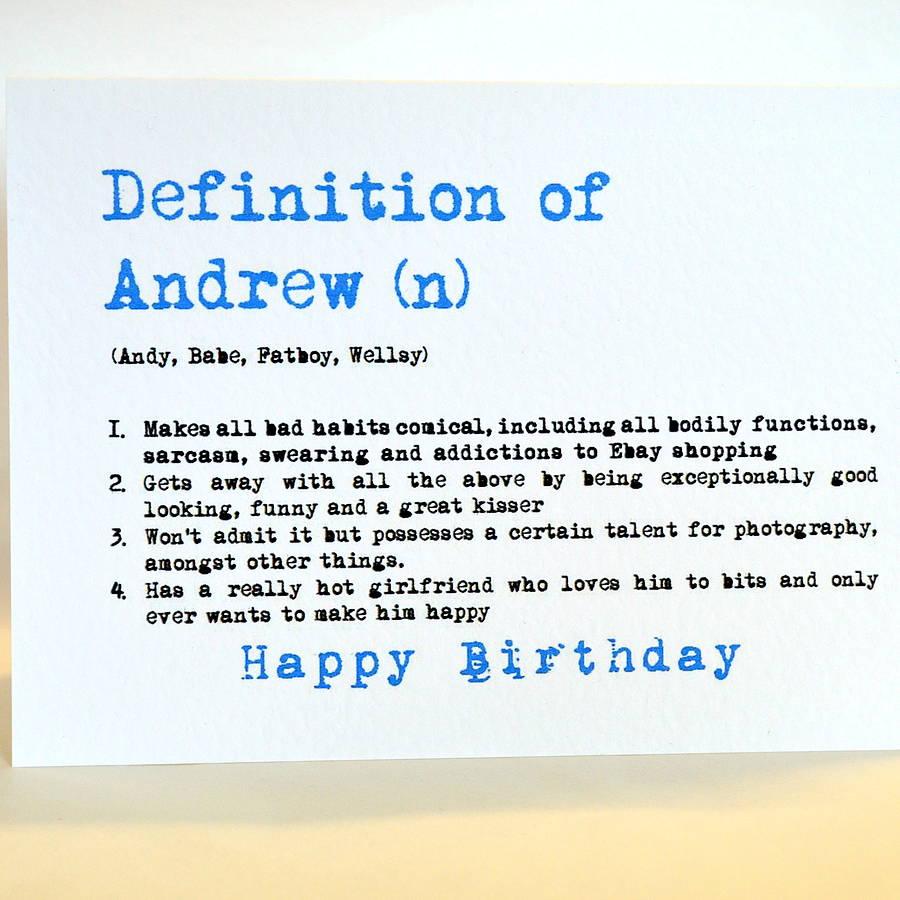 Definition of
Andrew (n)
(Andy, Babe, Fatboy, Wellsy)
1. Makes all bad habits comical, including all bodily functions,
sarcasm, swearing and addictions to Ebay shopping
2. Gets away with all the above by being exceptionally good
looking, funny and a great kisser
3. Won't admit it but possesses a certain talent for photography,
amongst other things.
4. Has a really hot girlfriend who loves him to bits and only
ever wants to make him happy
Happy Birthday